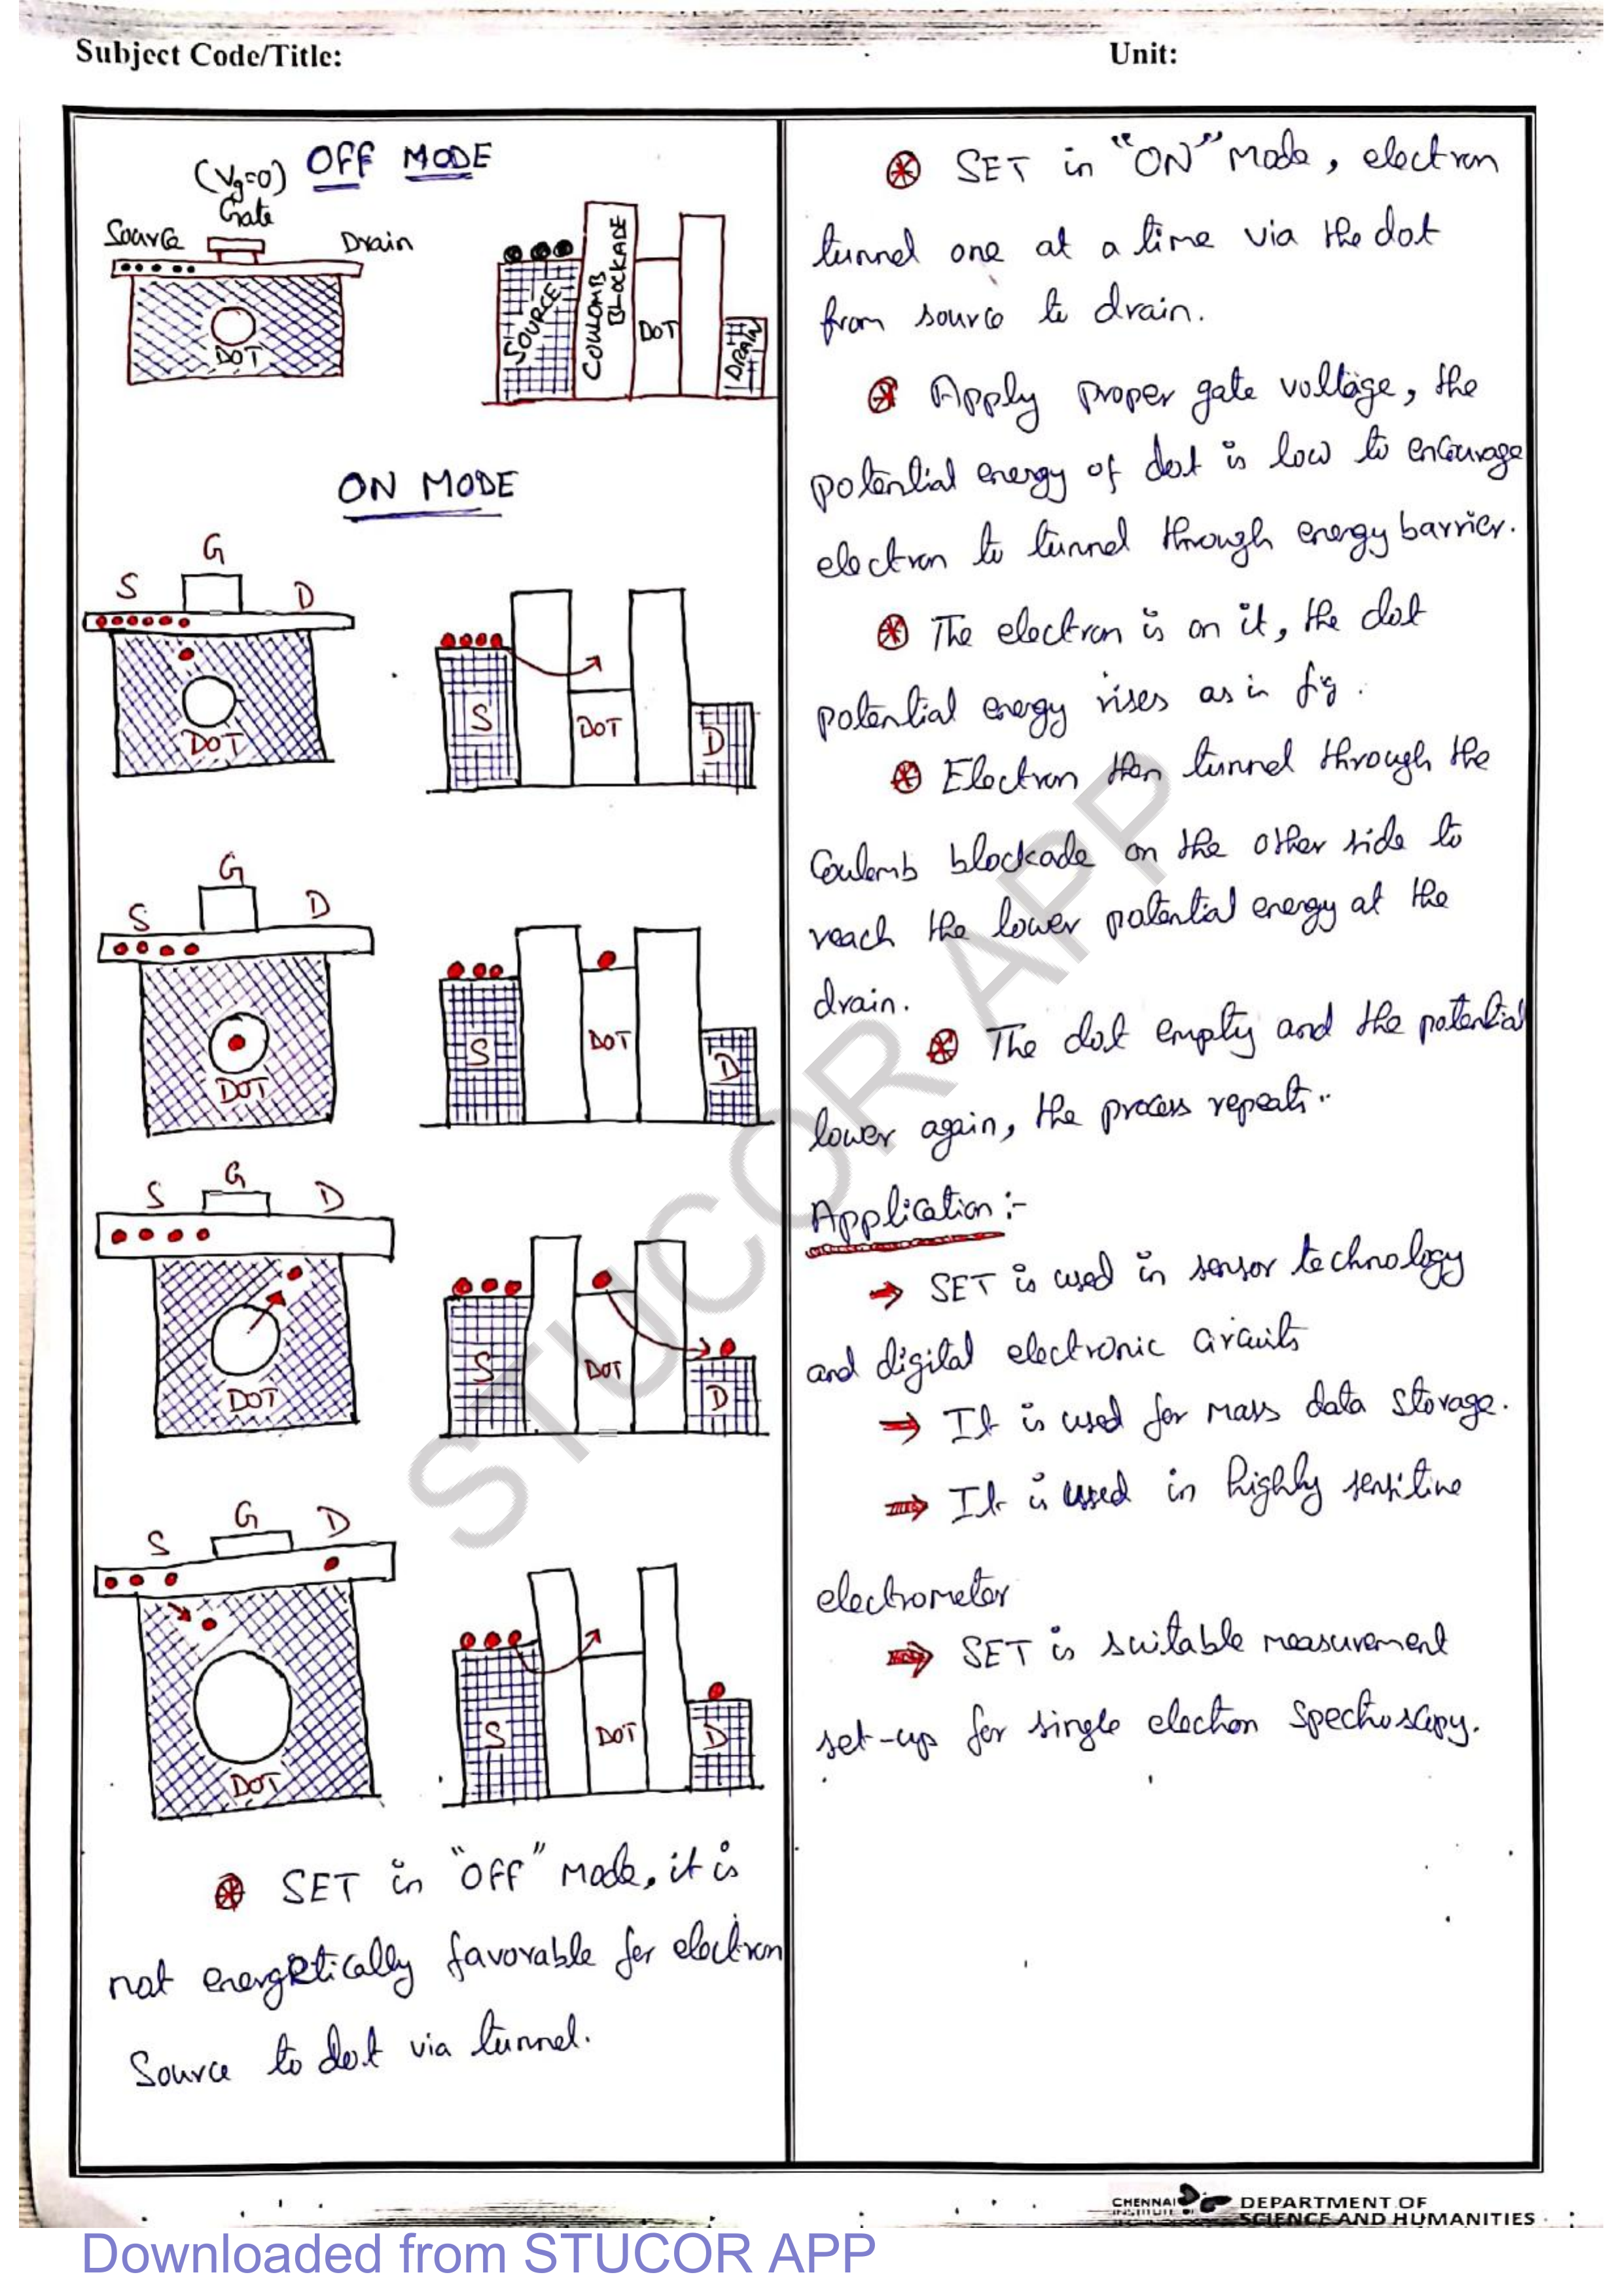 Subject Code/Title:
Unit:
OFF MODE
(Vg=0)
Gate
Source
Drain
DOT
SOURCE
COULOMB
BLOCKADE
DOT
DRAIN
ON MODE
G
S
D
DOT
S
DOT
D
G
S
D
DOT
S
DOT
D
G
S
D
DOT
S
DOT
D
G
S
D
DOT
S
DOT
D
SET in "OFF" Mode, it is
not energetically favorable for electron
Source to dot via tunnel.
SET in "ON" Mode, electron
tunnel one at a time via the dot
from source to drain.
Apply proper gate voltage, the
potential energy of dot is low to encourage
electron to tunnel through energy barrier.
The electron is on it, the dot
potential energy rises as in fig.
Electron then tunnel through the
Coulomb blockade on the other side to
reach the lower potential energy at the
drain.
The dot empty and the potential
lower again, the process repeats..
Application :-
→ SET is used in sensor technology
and digital electronic circuits
→ It is used for mass data storage.
→ It is used in highly sensitive
electrometer
→ SET is suitable measurement
set-up for single electron spectroscopy.
STUCOR APP
CHENNAI
INSTITUTE OF
DEPARTMENT OF
SCIENCE AND HUMANITIES
Downloaded from STUCOR APP